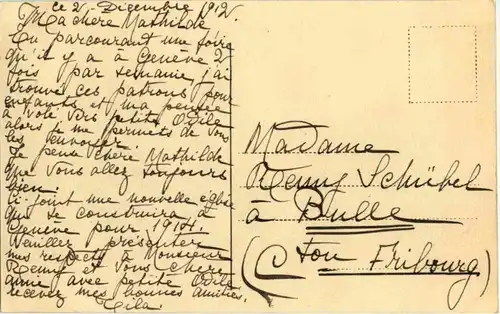 ce 2 Dicembre 1912.
Ma chère Mathilde
En parcourant une foire
qu'il y a à Genève 2
fois par semanie, j'ai
trouvé ces patrons pour
enfants et ma pensée
a volé vers petite Odile
alors je me permets de vous
les envoyer.
Je pense chère Mathilde
que vous allez toujours
bien.
Ci-joint une nouvelle église
que se construira à
Genève pour 1914.
Veuillez présenter
mes respects à Monsieur
Remy et vous chère
amie avec petite Odile
recevez mes bonnes amitiés.
Madame
Remy Schübel
à Bulle
(Cton Fribourg)